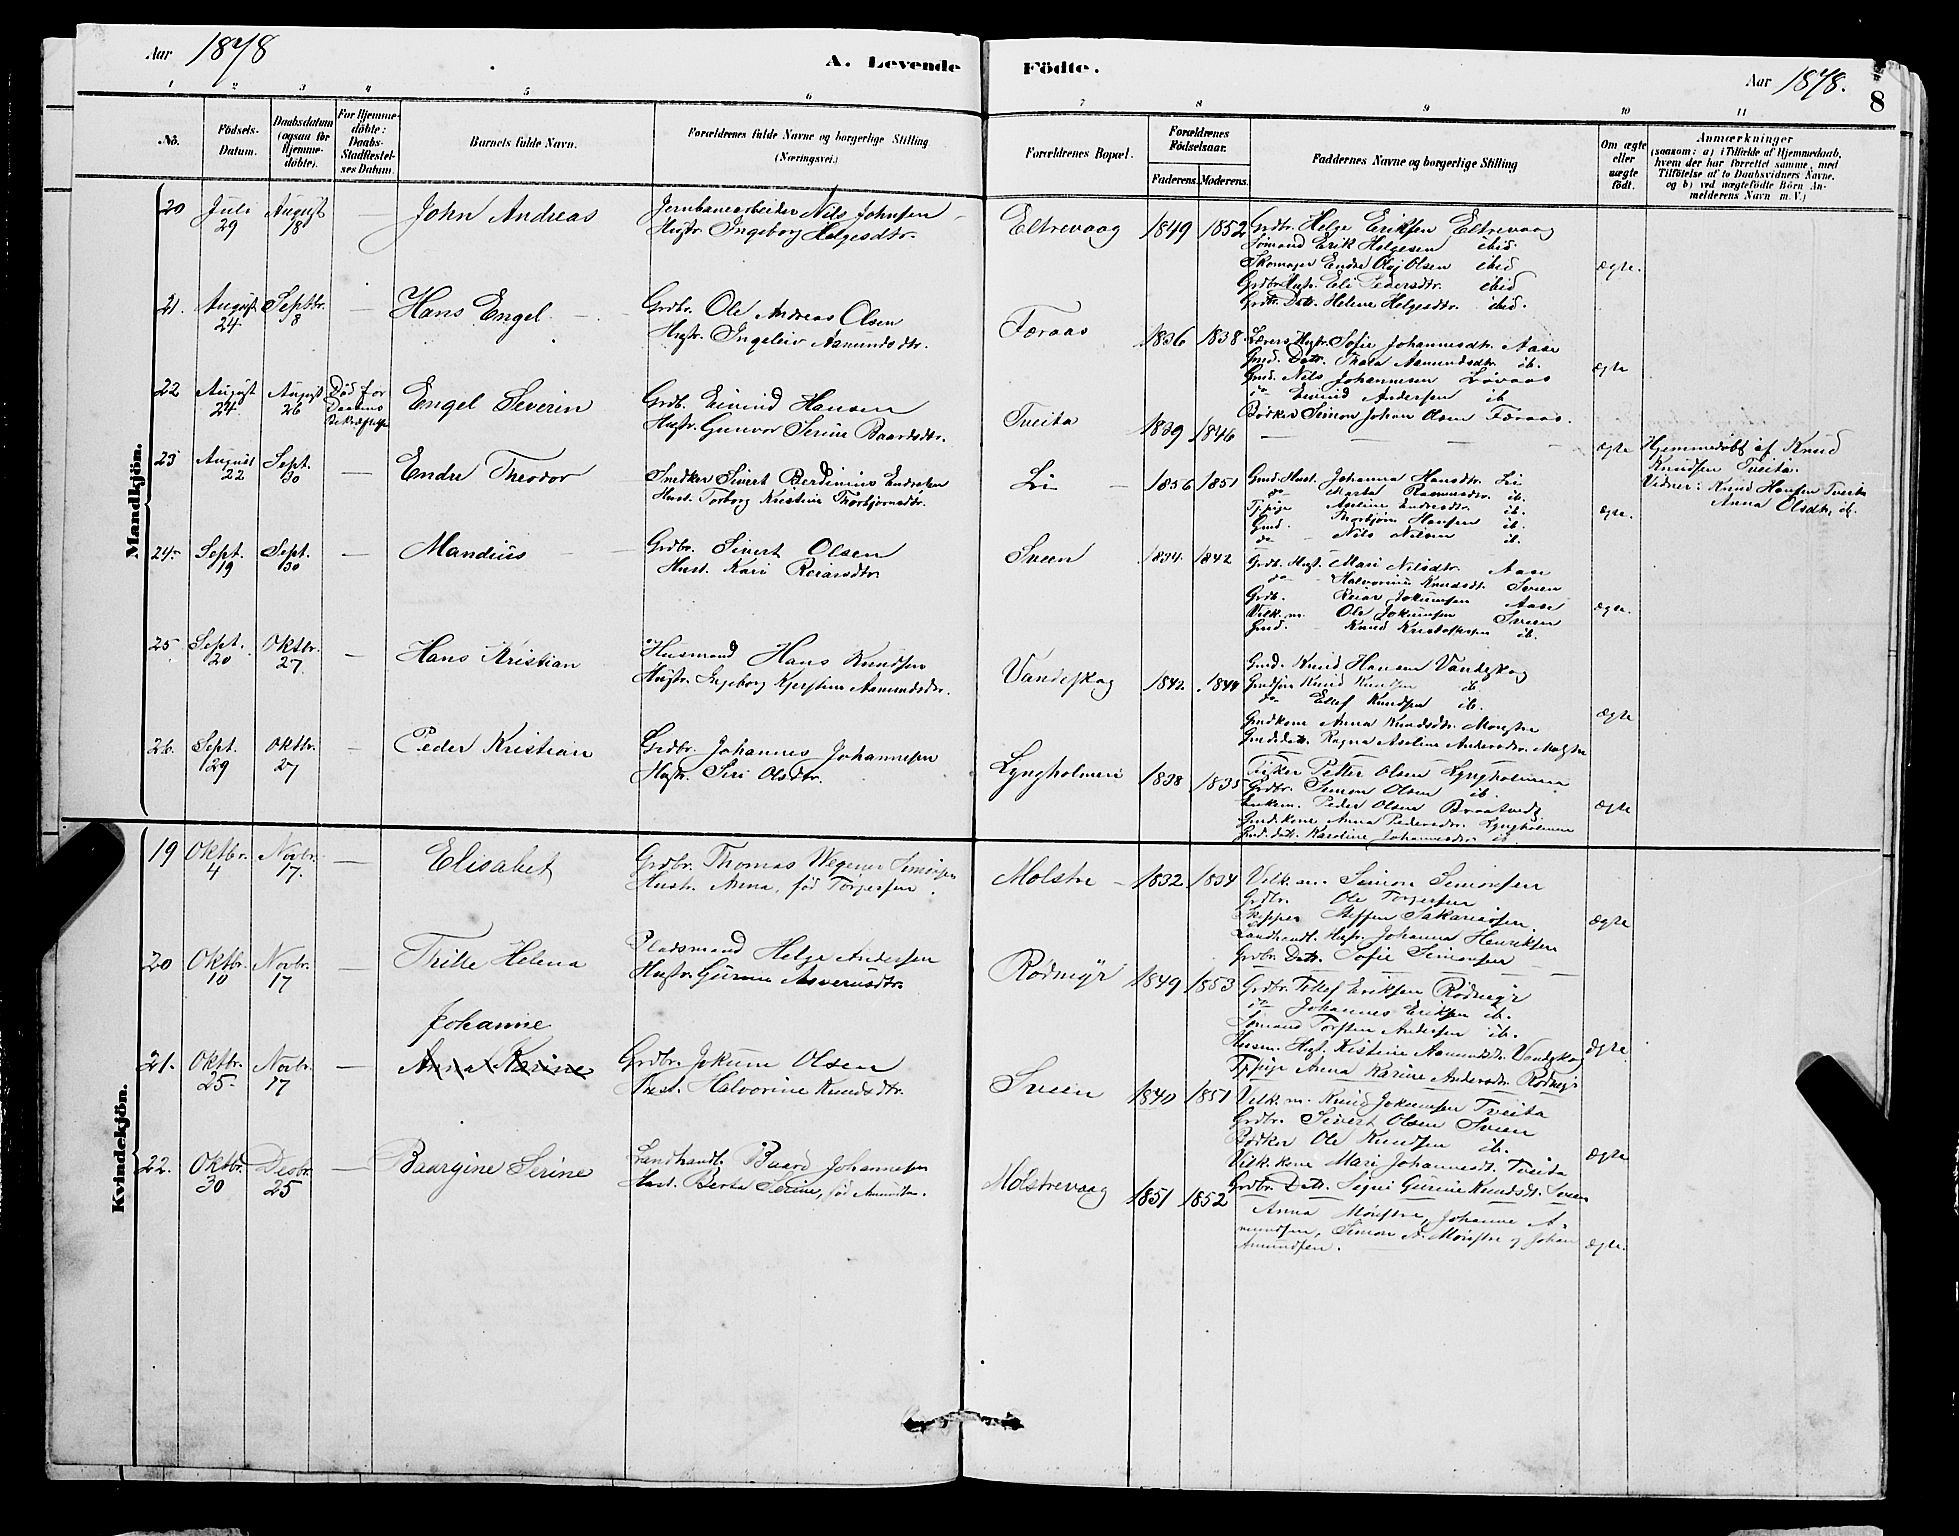 Aar 1878
A. Levende Födte.
Aar 1878.
8
1 2 3 4 5 6 7 8 9 10 11
No.
Födsels-Datum.
Daabsdatum (ogsaa for Hjemme-döbte).
For Hjemme-döbte: Daabs-Stadfæstel-ses Datum.
Barnets fulde Navn.
Forældrenes fulde Navne og borgerlige Stilling (Næringsvei.)
Forældrenes Bopæl.
Forældrenes Födselsaar.
Faderens. Moderens.
Faddernes Navne og borgerlige Stilling
Om ægte eller uægte födt.
Anmærkninger (saasom: a) i Tilfælde af Hjemmedaab, hvem der har forrettet samme, med Tilföielse af to Daabsvidners Navne, og b) ved uægtefödte Börn An-melderens Navn m.V.)
Mandkjön.
20 Juli 29 August 18 — John Andreas
Jernbanearbeider Nils Johnsen
Hustr. Ingeborg Helgesdtr.
Eltrevaag 1849 1852
Grdbr. Helge Eriksen Eltrevaag
Sömand Erik Helgesen ibid
Skomager Endre Olsen ibid
Grdbr Hustr. Eli Pedersdtr. ibid
Grdbr. Dattr. Helene Helgesdtr. ibid.
ægte.
21. August 24 Septbr. 8 — Hans Engel
Grdbr. Ole Andreas Olsen
Hustr. Ingeleiv Aamundsdtr.
Færaas 1836 1838
Lærers Hustr. Sofie Johannesdtr. Aase
Gmd. Dattr. Thea Aamundsdtr. ib.
Gmd. Nils Johannesen Lövaas
do Eivind Andersen ib
Bödker Simon Johan Olsen Færaas.
ægte
22 August 24 August 26 Död för Daabens Bekræftelse Engel Severin
Grdb. Eivind Hansen
Hustr. Gunvor Serine Baardsdtr.
Tveita 1839 1846
ægte
Hjemmedöbt af Knud Knudsen Tveita.
Vidner: Knud Hansen Tveita
Anna Olsdtr. ib.
23 August 22 Sept. 30 — Endre Theodor
Snedker Sivert Berdinius Endresen
Hust. Torborg Kristine Thorbjörnsdtr.
Li 1856 1851
Gmd. Hust. Johanna Hansdtr. Li
do Marta Rasmusdtr. ib.
Tjpige Aseline Endresdtr ib.
Gmd. Thorbjörn Hansen ib.
do Nils Nilsen ib.
ægte.
24. Sept. 19 Sept. 30 — Mandius
Grdbr. Sivert Olsen
Hust. Kari Reiarsdtr
Sveen 1834 1842
Grdb. Hust. Mari Nilsdtr. Aase
do Halvorine Knudsdt. Sveen
Grdb. Reiar Jokumsen Aase
Vilk.m. Ole Jokumsen Sveen
Gmd. Knud Kristofersen ib.
ægte.
25 Sept. 20 Oktbr. 27 — Hans Kristian
Husmand Hans Knudsen
Hustr. Ingeborg Kjerstine Aamundsdtr.
Vandeskog 1842 1844
Gmd. Knud Hansen Vandeskog
Gmdsön Knud Knudsen ib
do Ellef Knudsen ib.
Gmdkone Anna Knudsdtr. Monstre
Gmdsdatt. Ragna Aseline Andersdtr. Molstre
ægte
26. Sept. 29 Oktbr. 27 — Peder Kristian
Grdbr. Johannes Johannesen
Hustr. Siri Olsdtr.
Lyngholmen 1838 1835
Fisker Petter Olsen Lyngholmen
Grdbr. Simon Olsen ib.
Enkem. Peder Olsen Braatveit
Gmd.kone Anna Pedersdtr. Lyngholmen
Gmd. datt. Karoline Johannesdtr. ib
ægte
Kvindekjön.
19 Oktbr. 4 Novbr. 17. — Elisabet
Grdbr. Thomas Wegener Simonsen
Hustr. Anna, föd Torgersen.
Molstre 1832 1834
Vilk.m. Simon Simonsen
Grdbr. Ole Torgersen
Skipper Steffen Sakariasen
Landhandl. Hustr. Johanna Henriksen
Grdbr. Dattr. Sofie Simonsen
ægte
20 Oktbr. 10 Novbr. 17 — Trille Helena
Pladsmand Helge Andersen
Hustr. Gurine Asverusdtr.
Rödmyr 1849 1853
Grdbr. Ellef Eriksen Rödmyr
do Johannes Eriksen ib.
Sömand Torsten Andersen ib.
Husm. Hust. Kistine Aamundsdtr. Vandeskog
Tjpige Anna Karine Andersdtr. Rödmyr
ægte
21. Oktbr. 25. Novbr. 17 — Johanne
Anna Karine
Grdbr. Jokum Olsen
Hust. Halvorine Knudsdtr.
Sveen 1840 1851
Vilk. m. Knud Jokumsen Tveita
Grdbr. Sivert Olsen Sveen
Bödker Ole Knudsen ib.
Vilk. kone Mari Johannesdt. Tveita
Grdbr. Dattr. Signi Gurine Knudsdt. Sveen
ægte
22. Oktbr. 30 Desbr. 25 — Baargine Serine
Landhandl. Baard Johannesen
Hust. Berta Serine, föd Amundsen.
Molstrevaag 1851 1852
Anna Mönstre, Johanne A-
mundsen, Simon A. Mönstre og Johan
Amundsen.
ægte.